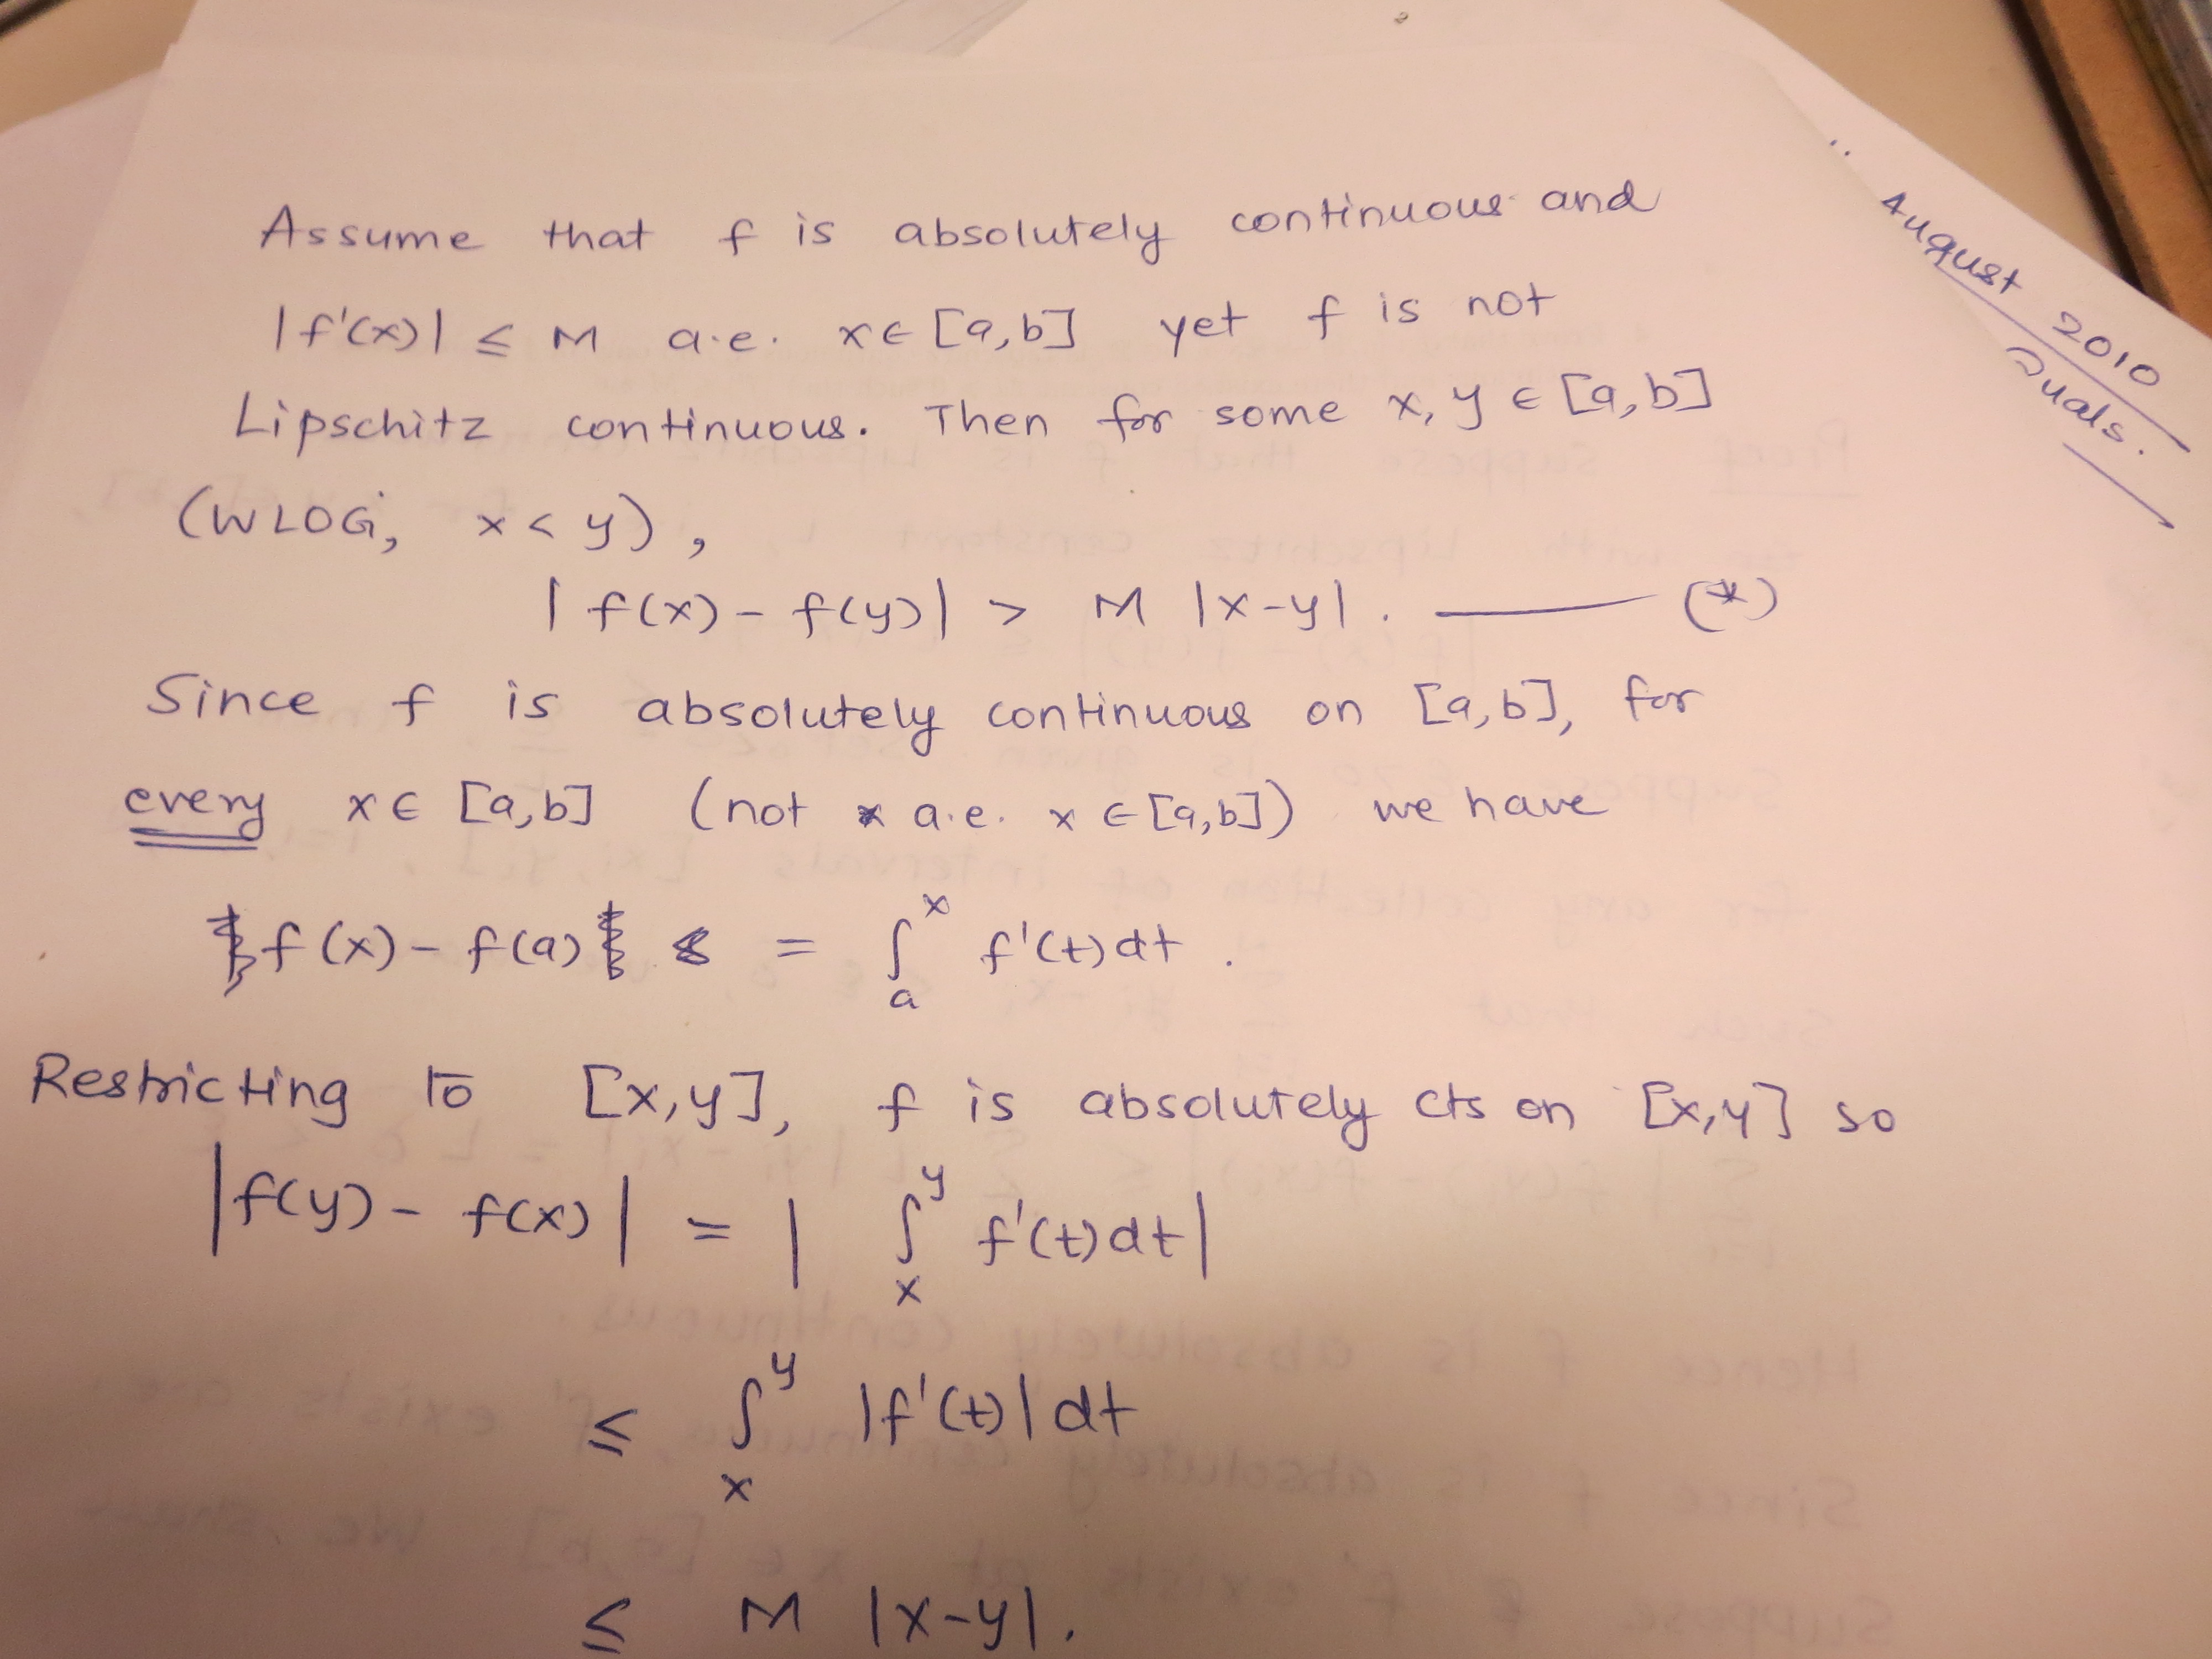 August 2010
Quals.
Assume that f is absolutely continuous and
|f'(x)| ≤ M a.e. x ∈ [a,b] yet f is not
Lipschitz continuous. Then for some x, y ∈ [a,b]
(WLOG, x < y),
|f(x) - f(y)| > M |x-y|. ——— (*)
Since f is absolutely continuous on [a,b], for
every x ∈ [a,b] (not a.e. x ∈ [a,b]) we have
f(x) - f(a) = ∫_a^x f'(t)dt.
Restricting to [x,y], f is absolutely cts on [x,y] so
|f(y) - f(x)| = |∫_x^y f'(t)dt|
≤ ∫_x^y |f'(t)|dt
≤ M |x-y|.